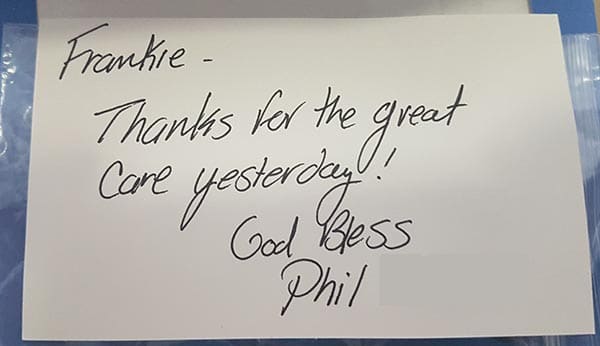 Frankie -
Thanks for the great
Care yesterday!
God Bless
Phil